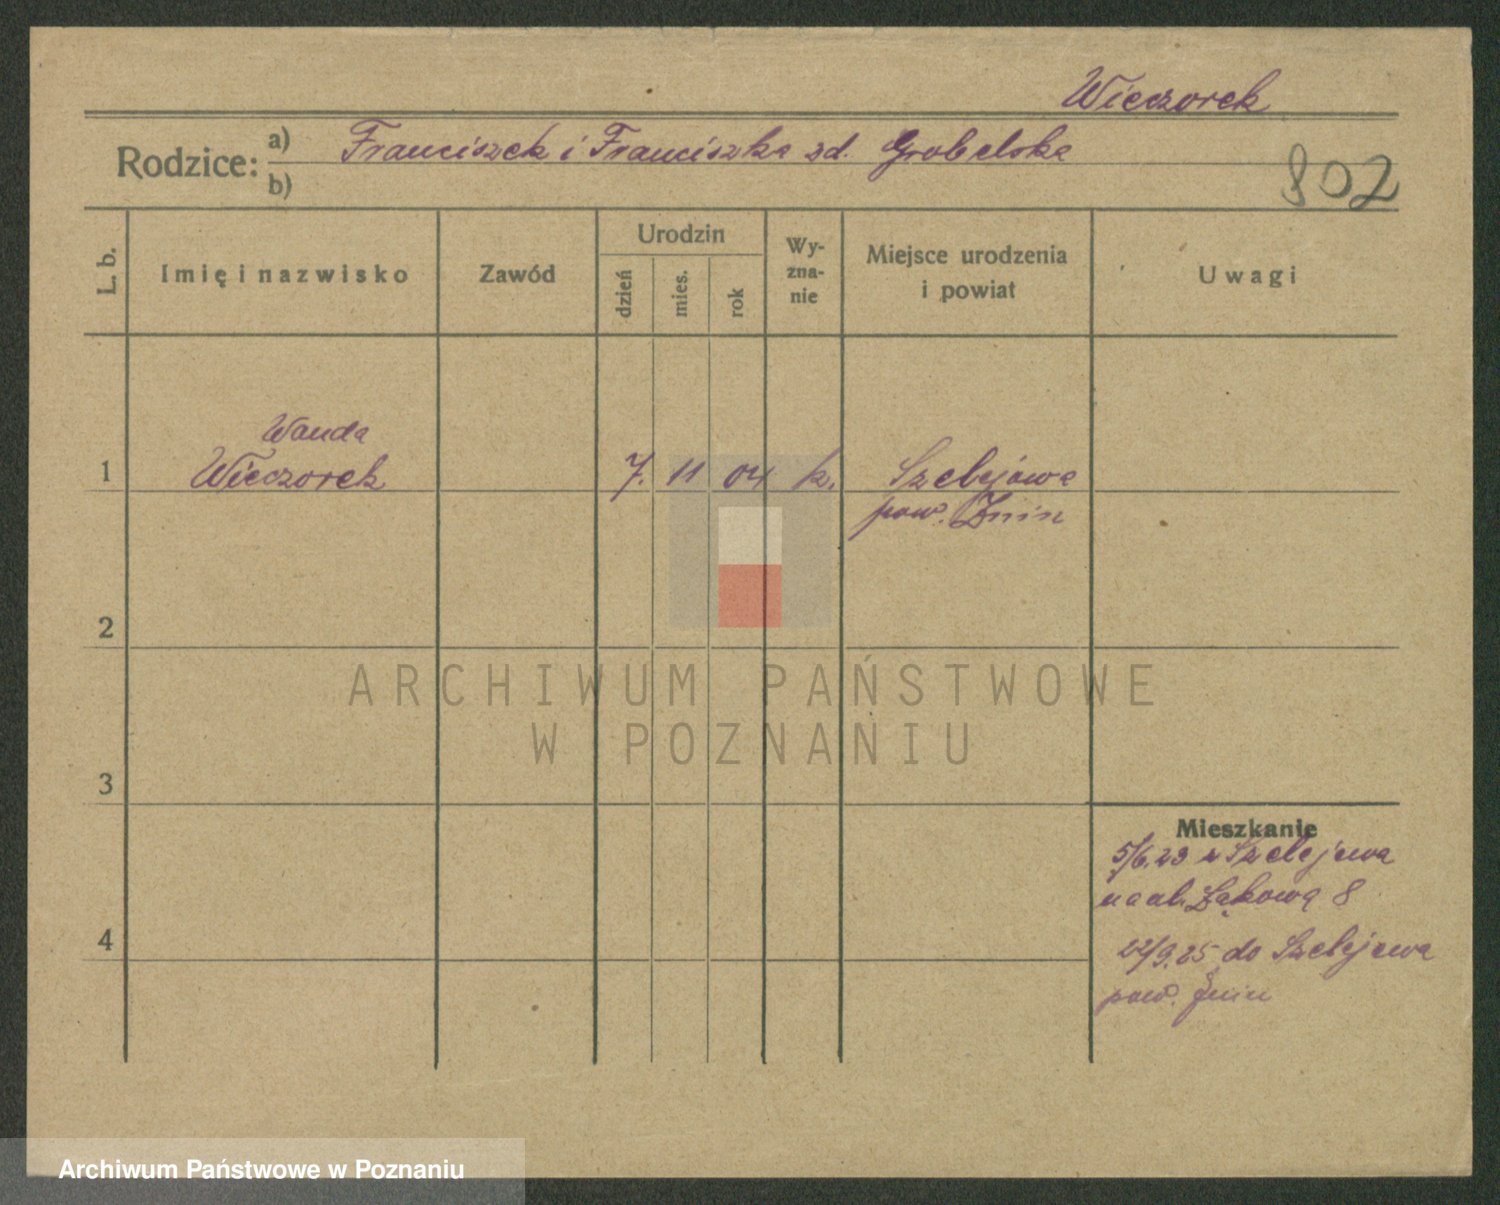 Wieczorek
Rodzice: a) Franciszek i Franciszka zd. Grobelska
b)
802
L. b.
Imię i nazwisko
Zawód
Urodzin
dzień
mies.
rok
Wy-
zna-
nie
Miejsce urodzenia
i powiat
Uwagi
Wanda
1 Wieczorek 7. 11 04 k. Szelejewo
pow. Żnin
2
ARCHIWUM PAŃSTWOWE
W POZNANIU
3
Mieszkanie
5/6.23 z Szelejewa
na ul. Łąkową 8
4
22/9.25 do Szelejewa
pow. Żnin
Archiwum Państwowe w Poznaniu